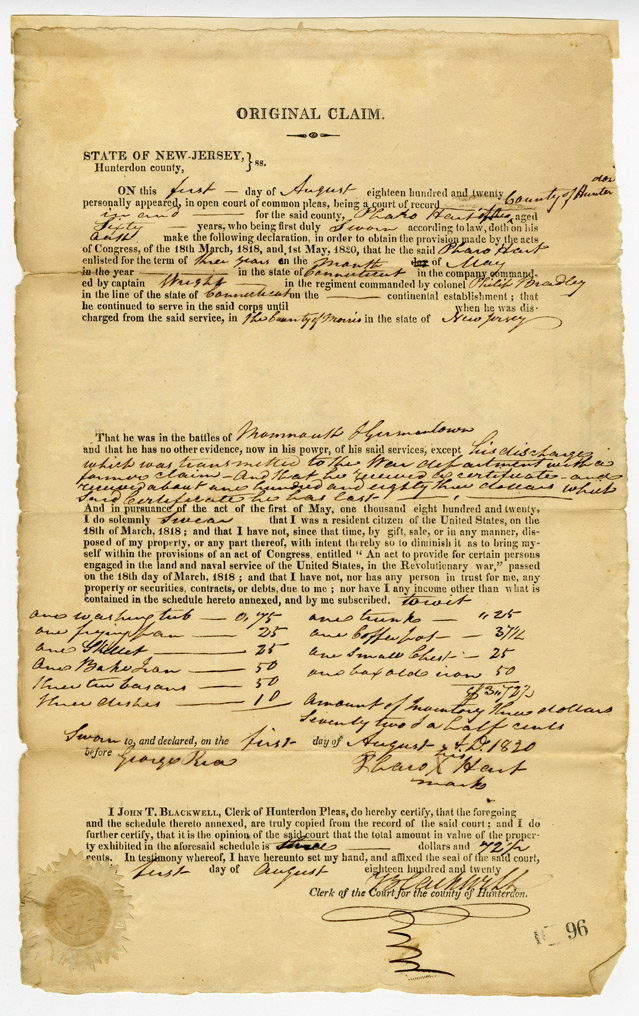 ORIGINAL CLAIM.
STATE OF NEW-JERSEY, } ss.
Hunterdon county,
ON this first — day of August eighteen hundred and twenty
personally appeared, in open court of common pleas, being a court of record County of Hunterdon
in and — for the said county, Pharo Hart aged
Sixty — years, who being first duly Sworn according to law, doth on his
oath make the following declaration, in order to obtain the provision made by the acts
of Congress, of the 18th March, 1818, and 1st May, 1820, that he the said Pharo Hart
enlisted for the term of three years on the month of May
in the year — in the state of Connecticut in the company command-
ed by captain Wright — in the regiment commanded by colonel Philip Bradley
in the line of the state of Connecticut on the — continental establishment ; that
he continued to serve in the said corps until when he was dis-
charged from the said service, in the County of Morris in the state of New Jersey
That he was in the battles of Monmouth & Germantown
and that he has no other evidence, now in his power, of his said services, except his discharge
which was transmitted to the War department with a
former claim — And that he received a certificate — and
received about one hundred and eighty three dollars which
said certificate he has lost
And in pursuance of the act of the first of May, one thousand eight hundred and twenty,
I do solemnly swear that I was a resident citizen of the United States, on the
18th of March, 1818 ; and that I have not, since that time, by gift, sale, or in any manner, dis-
posed of my property, or any part thereof, with intent thereby so to diminish it as to bring my-
self within the provisions of an act of Congress, entitled “ An act to provide for certain persons
engaged in the land and naval service of the United States, in the Revolutionary war,” passed
on the 18th day of March, 1818 ; and that I have not, nor has any person in trust for me, any
property or securities, contracts, or debts, due to me ; nor have I any income other than what is
contained in the schedule hereto annexed, and by me subscribed. to wit
one washing tub — 0,75 one trunk — ,, 25
one frying pan — 25 one Coffee pot — 37½
one Skillet — 25 one Small Chest — 25
One Bake Iron — 50 one box old iron 50
three tin basons — 50 $3,,72½
three dishes — 10 Amount of Inventory three dollars
Seventy two & a half cents
Sworn to, and declared, on the first day of August A.D. 1820
before George Rea Pharo his X Hart
mark
I JOHN T. BLACKWELL, Clerk of Hunterdon Pleas, do hereby certify, that the foregoing
and the schedule thereto annexed, are truly copied from the record of the said court; and I do
further certify, that it is the opinion of the said court that the total amount in value of the proper-
ty exhibited in the aforesaid schedule is three — dollars and 72½
cents. In testimony whereof, I have hereunto set my hand, and affixed the seal of the said court,
first day of August eighteen hundred and twenty
J Blackwell
Clerk of the Court for the county of Hunterdon.
96